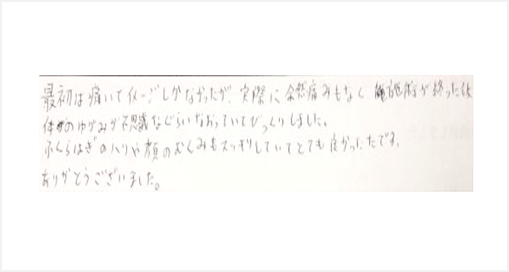 最初は痛いてイメージしかなかったが、実際に全然痛みもなく 施術が終った後
体のゆがみが不思議なぐらいなおっていてびっくりしました。
ふくらはぎのハリや顔のむくみもスッキリしていてとても良かったです。
ありがとうございました。